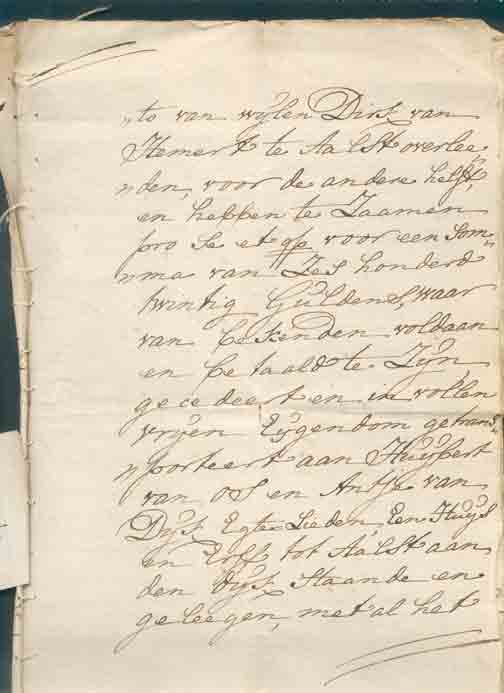 „to van wijlen Dirk van
Hemert te Aalst overlee„
„nden, voor de andere helft,
en hebben te Zaamen
pro Se et qq voor een Som„
„ma van Zes honderd
twintig Guldens, waar
van bekenden voldaan
en betaald te Zijn,
gecedeert en in vollen
vrijen Eijgendom getrans„
„porteert aan Huijbert
van Os en Antje van
Dijk Egte Lieden, Een Huijs
en Erff tot Aalst aan
den Dijk Staande en
geleegen, met al het